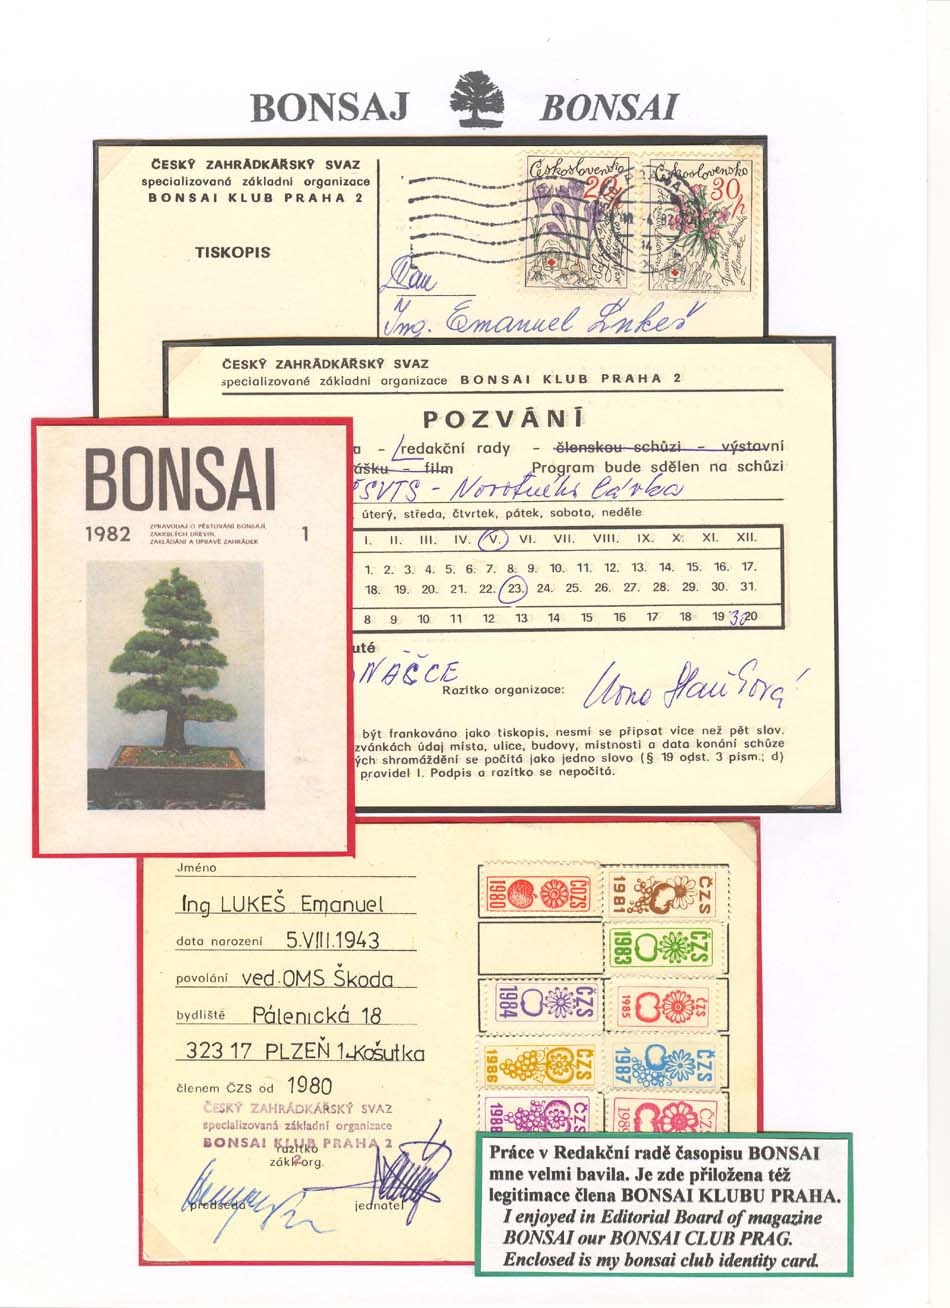 BONSAJ BONSAI
ČESKÝ ZAHRÁDKÁŘSKÝ SVAZ
specializovaná základní organizace
BONSAI KLUB PRAHA 2
TISKOPIS
Československo
20h
Československo
30h
Pan
Ing. Emanuel Lukeš
ČESKÝ ZAHRÁDKÁŘSKÝ SVAZ
specializované základní organizace BONSAI KLUB PRAHA 2
POZVÁNÍ
a – redakční rady – členskou schůzi – výstavní
ášku – film Program bude sdělen na schůzi
ČSVTS - Novotného lávka
úterý, středa, čtvrtek, pátek, sobota, neděle
I. II. III. IV. V. VI. VII. VIII. IX. X. XI. XII.
1. 2. 3. 4. 5. 6. 7. 8. 9. 10. 11. 12. 13. 14. 15. 16. 17.
18. 19. 20. 21. 22. 23. 24. 25. 26. 27. 28. 29. 30. 31.
8 9 10 11 12 13 14 15 16 17 18 19 30 20
uté
NAŠCE
Razítko organizace:
být frankováno jako tiskopis, nesmí se připsat více než pět slov.
zvánkách údaj místa, ulice, budovy, místnosti a data konání schůze
ých shromáždění se počítá jako jedno slovo (§ 19 odst. 3 písm.; d)
pravidel I. Podpis a razítko se nepočítá.
BONSAI
1982 1
ZPRAVODAJ O PĚSTOVÁNÍ BONSAJÍ,
ZAKRSLÝCH DŘEVIN,
ZAKLÁDÁNÍ A ÚPRAVĚ ZAHRÁDEK
Jméno
Ing LUKEŠ Emanuel
data narození 5.VIII.1943
povolání ved.OMS Škoda
bydliště Pálenická 18
323 17 PLZEŇ 1-Košutka
členem ČZS od 1980
ČESKÝ ZAHRÁDKÁŘSKÝ SVAZ
specializovaná základní organizace
BONSAI KLUB PRAHA 2
razítko
zákl. org.
předseda jednatel
1980 ČOZS
1981 ČZS
1983 ČZS
1984 ČZS
1985 ČZS
1986 ČZS
1987 ČZS
198 ČZS
198 ČZS
Práce v Redakční radě časopisu BONSAI
mne velmi bavila. Je zde přiložena též
legitimace člena BONSAI KLUBU PRAHA.
I enjoyed in Editorial Board of magazine
BONSAI our BONSAI CLUB PRAG.
Enclosed is my bonsai club identity card.